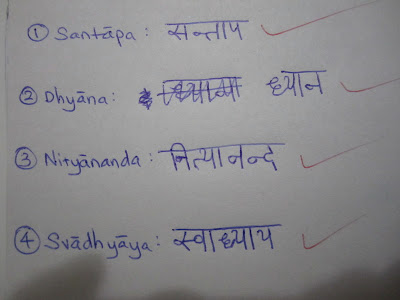 ① Santāpa: सन्ताप
② Dhyāna: ध्यान
③ Nityānanda: नित्यानन्द
④ Svādhyāya: स्वाध्याय